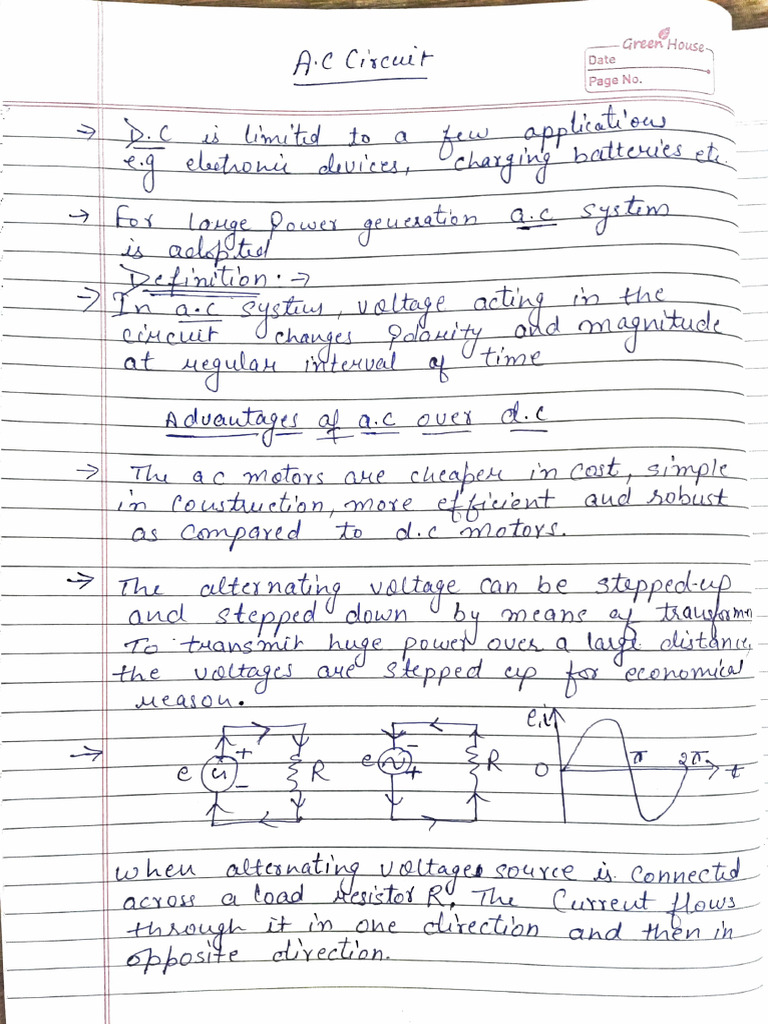 Green House
A.C Circuit
Date
Page No.
→ D.C is limited to a few applications
e.g electronic devices, charging batteries etc.
→ For large Power generation a.c system
is adopted
Definition :→
→ In a.c system, voltage acting in the
circuit changes polarity and magnitude
at regular interval of time
Advantages of a.c over d.c
→ The ac motors are cheaper in cost, simple
in construction, more efficient and robust
as compared to d.c motors.
→ The alternating voltage can be stepped-up
and stepped down by means of transformer
To transmit huge power over a large distance,
the voltages are stepped up for economical
reason.
→ e + - R e - + R e,i 0 π 2π t
when alternating voltage source is connected
across a load resistor R, The Current flows
through it in one direction and then in
opposite direction.